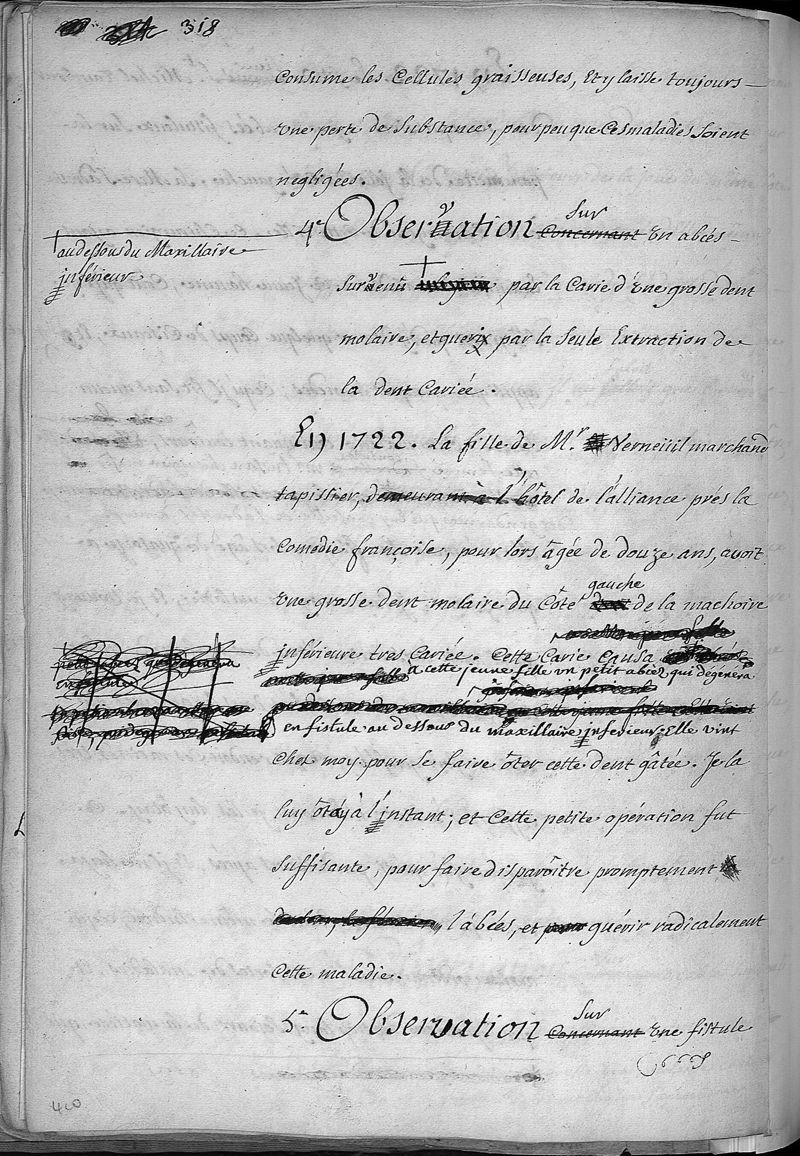 318
consume les Cellules graisseuses, Et y laisse toujours
une perte de Substance, pour peu que Ces maladies Soient
negligées.
4e Observation Sur Concernant un abcés
au dessous du Maxillaire
inférieur
survenu par la Carie d'une grosse dent
molaire, et guerix par la Seule Extraction de
la dent Cariée.
En 1722. La fille de Mr Verneüil marchand
tapissier, demeurant à l'hôtel de l'alliance prés la
Comédie françoise, pour lors âgée de douze ans, avoit
une grosse dent molaire du Côté gauche de la machoire
inférieure tres Cariée. Cette Carie Causa
a cette jeune fille un petit abcez qui dégénera
en fistule au dessous du maxillaire inferieur; Elle vint
chez moy pour se faire ôter cette dent gâtée. Je la
luy ôtay à l'instant; et Cette petite opération fut
Suffisante, pour faire disparoître promptement
l'abcés, et pour guérir radicalement
Cette maladie.
5e Observation Sur Concernant une fistule
400